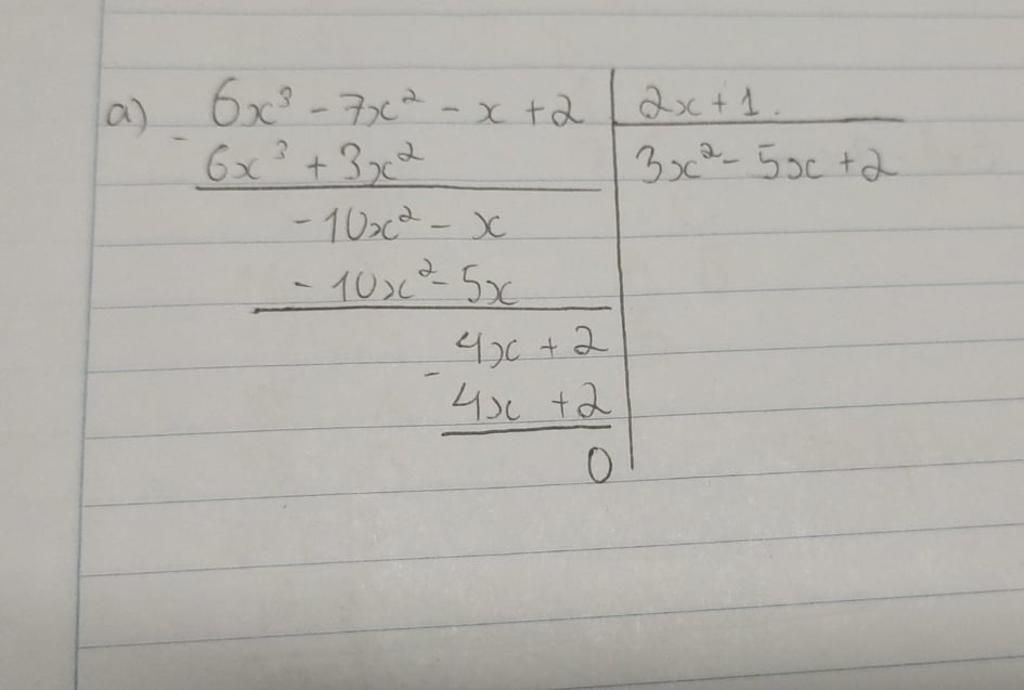 a) 6x³ - 7x² - x + 2 | 2x + 1.
- 6x³ + 3x² | 3x² - 5x + 2
-10x² - x
-10x² - 5x
4x + 2
- 4x + 2
0